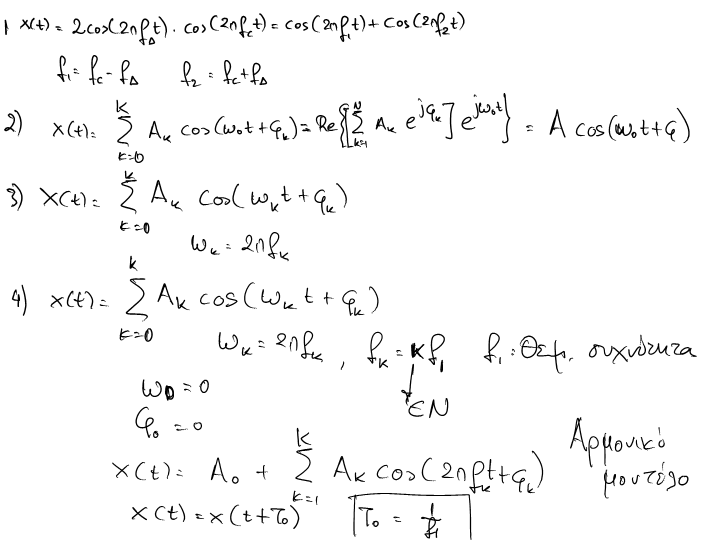 1 x(t) = 2cos(2πf_Δt) · cos(2πf_ct) = cos(2πf_1t) + cos(2πf_2t)
f_1 = f_c - f_Δ f_2 = f_c + f_Δ
2) x(t) = Σ_{k=0}^{K} A_k cos(ω_0t + φ_k) = Re{[Σ_{k=1}^{N} A_k e^{jφ_k}] e^{jω_0t}} = A cos(ω_0t + φ)
3) x(t) = Σ_{k=0}^{K} A_k cos(ω_kt + φ_k)
ω_k = 2πf_k
4) x(t) = Σ_{k=0}^{K} A_k cos(ω_k t + φ_k)
ω_k = 2πf_k , f_k = kf_1 f_1 : Θεμ. συχνότητα
ω_0 = 0 ∈N
φ_0 = 0
x(t) = A_0 + Σ_{k=1}^{K} A_k cos(2πf_kt + φ_k) Αρμονικό
μοντέλο
x(t) = x(t+T_0) T_0 = 1/f_1